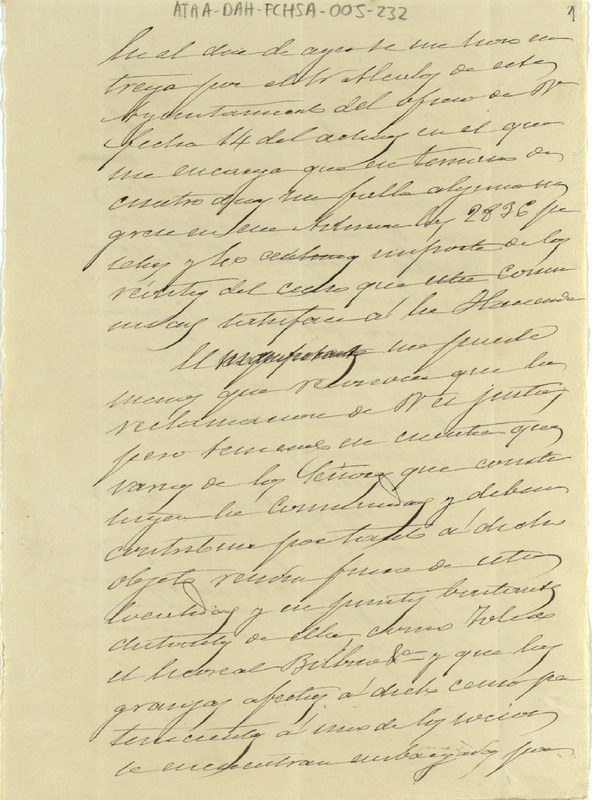 ATAA-DAH-FCHSA-005-232
1
En el dia de ayer se me hizo en
trega por el Sr Alcalde de este
Ayuntamiento del oficio de V
fecha 14 del actual en el que
me encarga que en termino de
cuatro dias sin falta alguna in
grese en esa 2836 pe
setas y 40 centimos importe de los
réditos del censo que esta comu
nidad satisface á la Hacienda
El no puede
menos que reconocer que la
reclamacion de V es justa,
pero teniendo en cuenta que
varios de los Señores que consti
tuyen la Comunidad y deben
contribuir por tanto á dicho
objeto residen fuera de esta
localidad y en puntos bastante
distantes de ella como Tolosa
el Bilbao &a y que las
granjas afectas á dicho censo per
tenecientes á uno de los socios
se encuentran embargadas por